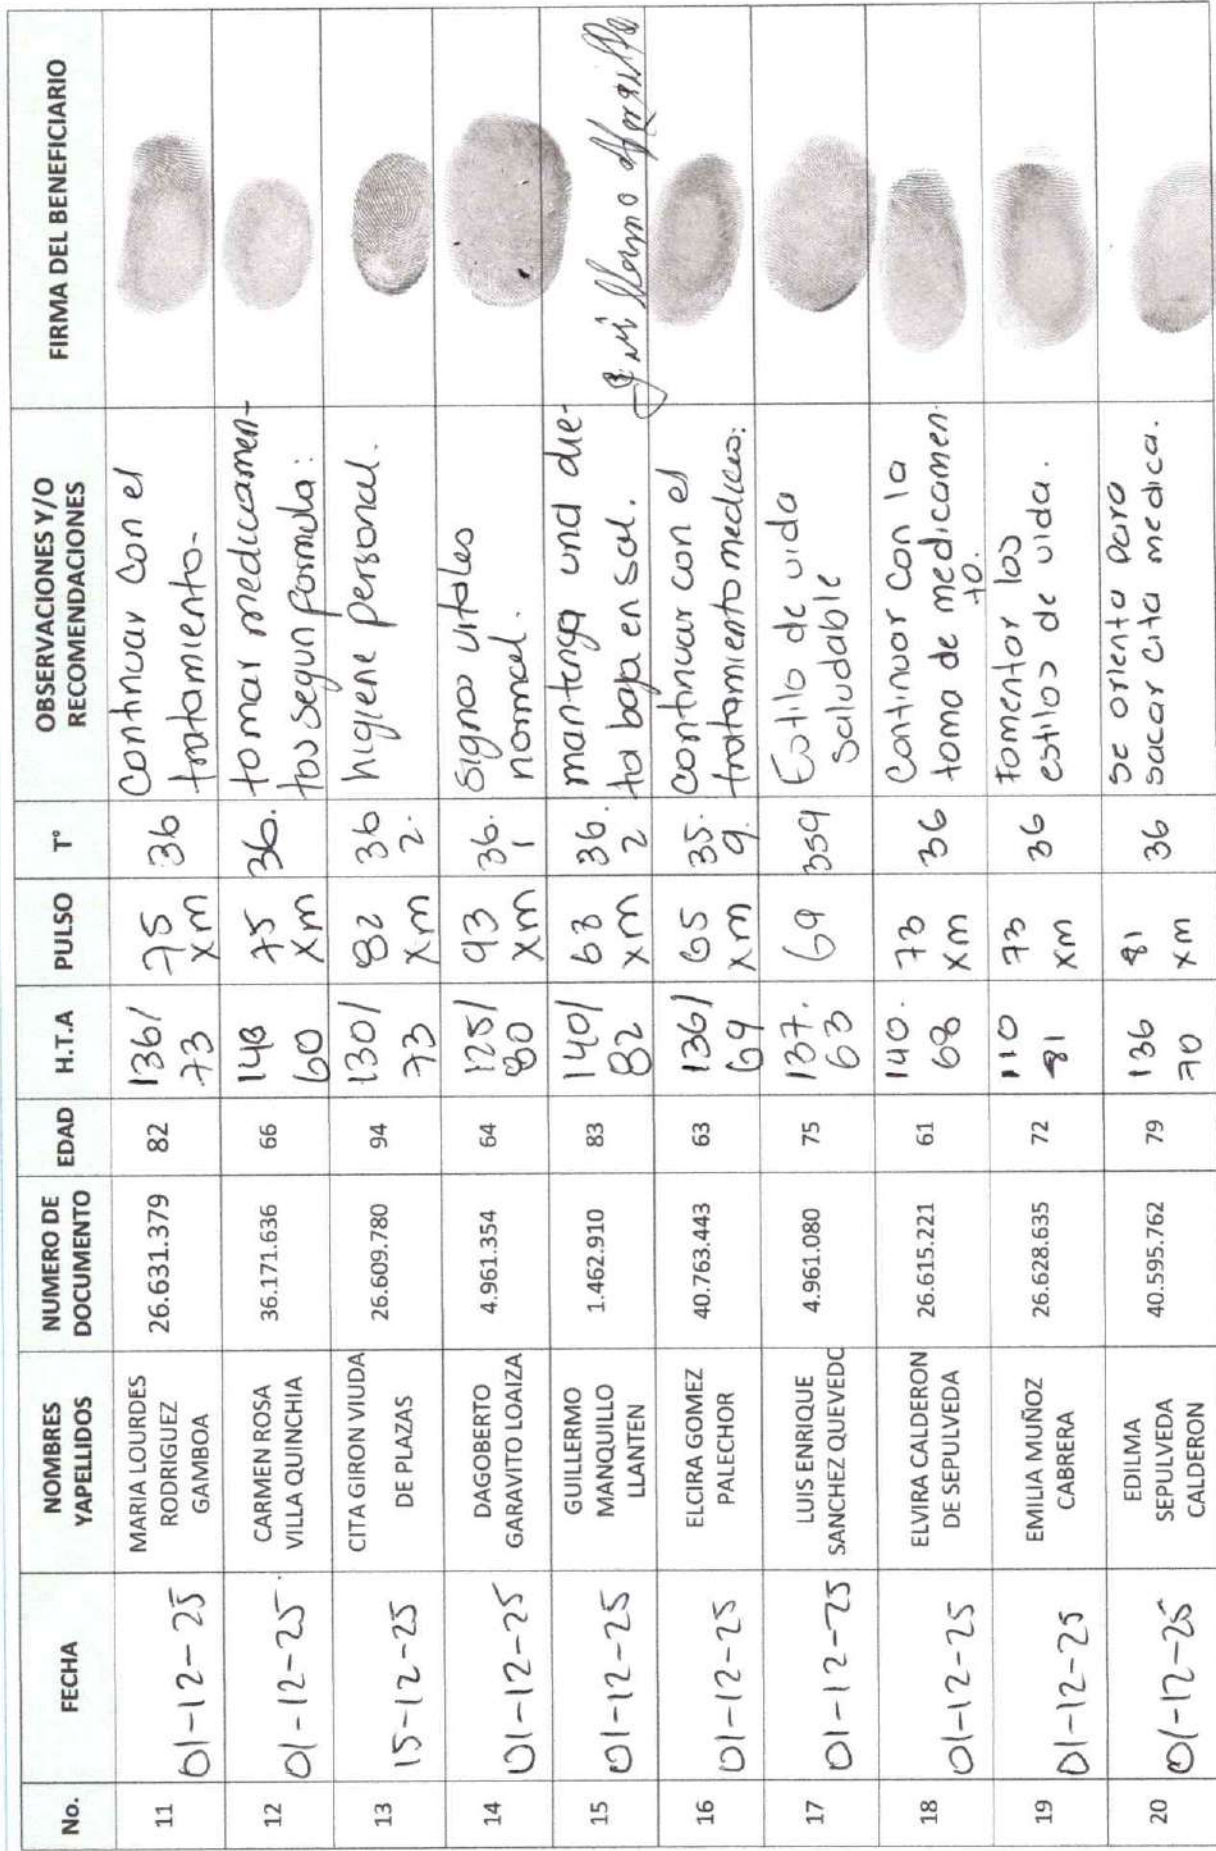 No. FECHA NOMBRES YAPELLIDOS NUMERO DE DOCUMENTO EDAD H.T.A PULSO T° OBSERVACIONES Y/O RECOMENDACIONES FIRMA DEL BENEFICIARIO
11 01-12-25 MARIA LOURDES RODRIGUEZ GAMBOA 26.631.379 82 136/73 75 xm 36 Continuar con el tratamiento-
12 01-12-25. CARMEN ROSA VILLA QUINCHIA 36.171.636 66 148 60 75 xm 36. tomar medicamen-tos segun formula:
13 15-12-25 CITA GIRON VIUDA DE PLAZAS 26.609.780 94 130/73 82 xm 36 2. higiene personal.
14 01-12-25 DAGOBERTO GARAVITO LOAIZA 4.961.354 64 125/80 93 xm 36.1 signos vitales normal.
15 01-12-25 GUILLERMO MANQUILLO LLANTEN 1.462.910 83 140/82 68 xm 36.2 mantenga und die-ta baja en sal.
16 01-12-25 ELCIRA GOMEZ PALECHOR 40.763.443 63 136/69 65 xm 35.9. continuar con el tratamiento medico:
17 01-12-25 LUIS ENRIQUE SANCHEZ QUEVEDO 4.961.080 75 137.63 69 359 Estilo de vida saludable
18 01-12-25 ELVIRA CALDERON DE SEPULVEDA 26.615.221 61 140.68 73 xm 36 Continuar con la toma de medicamen-to.
19 01-12-25 EMILIA MUÑOZ CABRERA 26.628.635 72 110 81 73 xm 36 Fomentar los estilos de vida.
20 01-12-25 EDILMA SEPULVEDA CALDERON 40.595.762 79 136 70 81 xm 36 se orienta para sacar cita medica.